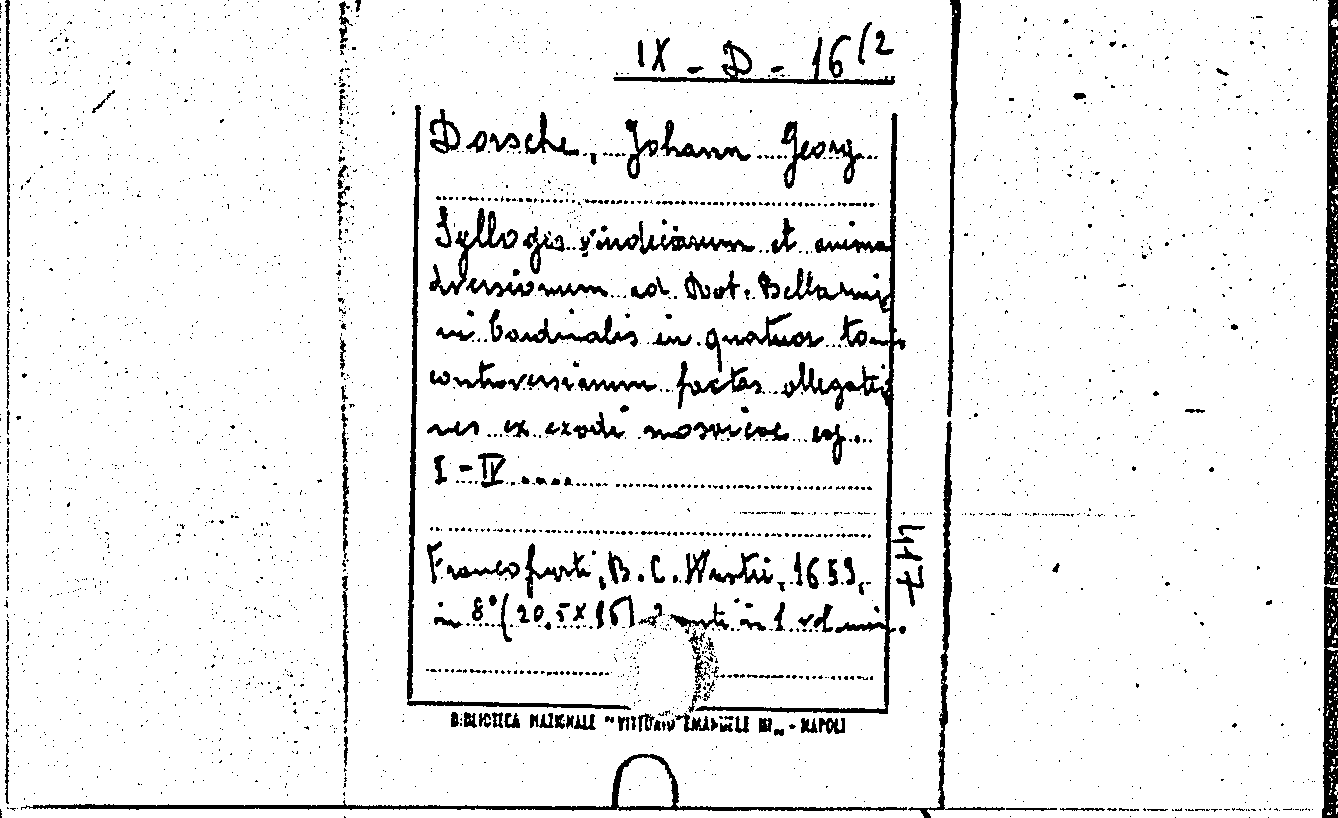 IX - D - 16 (2
Dorsche, Johann Georg
Syllogis vindiciarum et anima
dversionum ad Rot. Bellarmi
ni Cardinalis in quatuor tom.
controversiarum factas allegatio
nes ex exodi mosaicae cap.
I - IV ....
Francofurti, B. C. Wustii, 1653,
in 8° (20,5 X 15) 2 parti in 1 vol.
BIBLIOTECA NAZIONALE "VITTORIO EMANUELE III" - NAPOLI